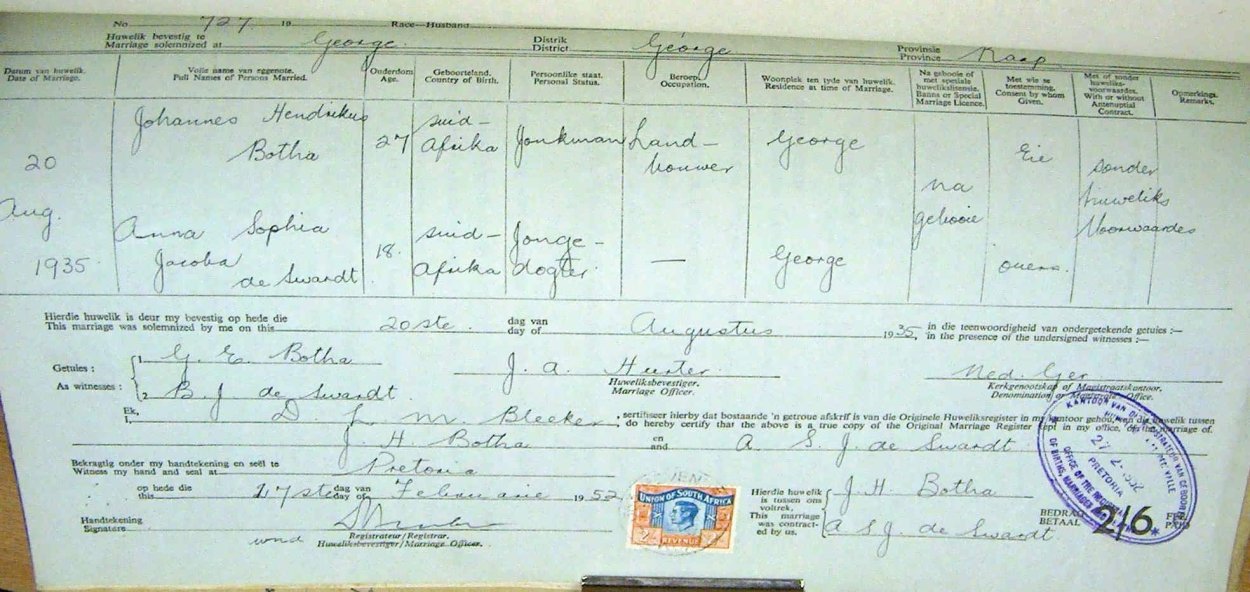 No 727 19 Race—Husband
Huwelik bevestig te
Marriage solemnized at George.
Distrik
District George
Provinsie
Province Kaap.
Datum van huwelik.
Date of Marriage.
Volle name van eggenote.
Full Names of Persons Married.
Ouderdom
Age.
Geboorteland.
Country of Birth.
Persoonlike staat.
Personal Status.
Beroep.
Occupation.
Woonplek ten tyde van huwelik.
Residence at time of Marriage.
Na gebooie of
met spesiale
huwelikslisensie.
Banns or Special
Marriage Licence.
Met wie se
toestemming.
Consent by whom
Given.
Met of sonder
huweliks-
voorwaardes.
With or without
Antenuptial
Contract.
Opmerkings.
Remarks.
20
Aug.
1935.
Johannes Hendrikus
Botha
27
Suid-
Afrika
Jonkman
Land-
bouwer
George
Eie
Anna Sophia
Jacoba
de Swardt
18.
Suid-
Afrika
Jonge-
dogter
—
George
ouers.
na
gebooie
sonder
huweliks
Voorwaardes
Hierdie huwelik is deur my bevestig op hede die
This marriage was solemnized by me on this 20ste. dag van
day of Augustus 1935, in die teenwoordigheid van ondergetekende getuies :—
in the presence of the undersigned witnesses :—
Getuies :
As witnesses :
1 G. E. Botha
2 B. J. de Swardt
J. A. Hurter.
Huweliksbevestiger.
Marriage Officer.
Ned. Ger
Kerkgenootskap of Magistraatskantoor.
Denomination or Magistrate's Office.
Ek,
I, D. J. M. Bleeker, sertifiseer hierby dat bostaande 'n getroue afskrif is van die Originele Huweliksregister in my kantoor gehou, van die huwelik tussen
do hereby certify that the above is a true copy of the Original Marriage Register kept in my office, of the marriage of.
J H Botha en
and A. S. J. de Swardt
Bekragtig onder my handtekening en seël te
Witness my hand and seal at Pretoria
op hede die
this 27ste dag van
day of Februarie 1952.
Handtekening
Signature
wnd Registrateur/Registrar.
Huweliksbevestiger/Marriage Officer.
UNION OF SOUTH AFRICA
REVENUE
Hierdie huwelik
is tussen ons
voltrek.
This marriage
was contract-
ed by us.
J. H. Botha
A S J. de Swardt
PRETORIA
BEDRAG
BETAAL 2/6*